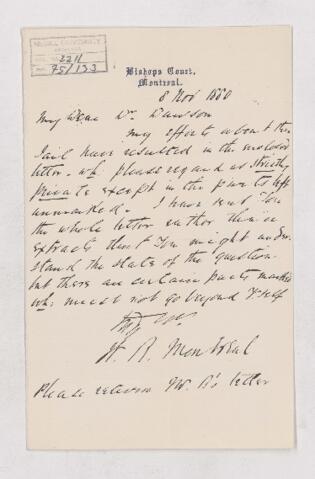 McGILL UNIVERSITY
ARCHIVES
2211
75/133
Bishops Court,
Montreal.
8 Nov 1880
My Dear Dr. Dawson
my efforts about the
Jail have resulted in the enclosed
letter. wh: please regard as strictly
private except in the parts left
unmarked. I have sent You
the whole letter rather than
extracts that You might under
stand the state of the question
but there are certain parts marked
wh: must not go beyond Yrself
W. B. Montreal
Please return Mr. B's letter